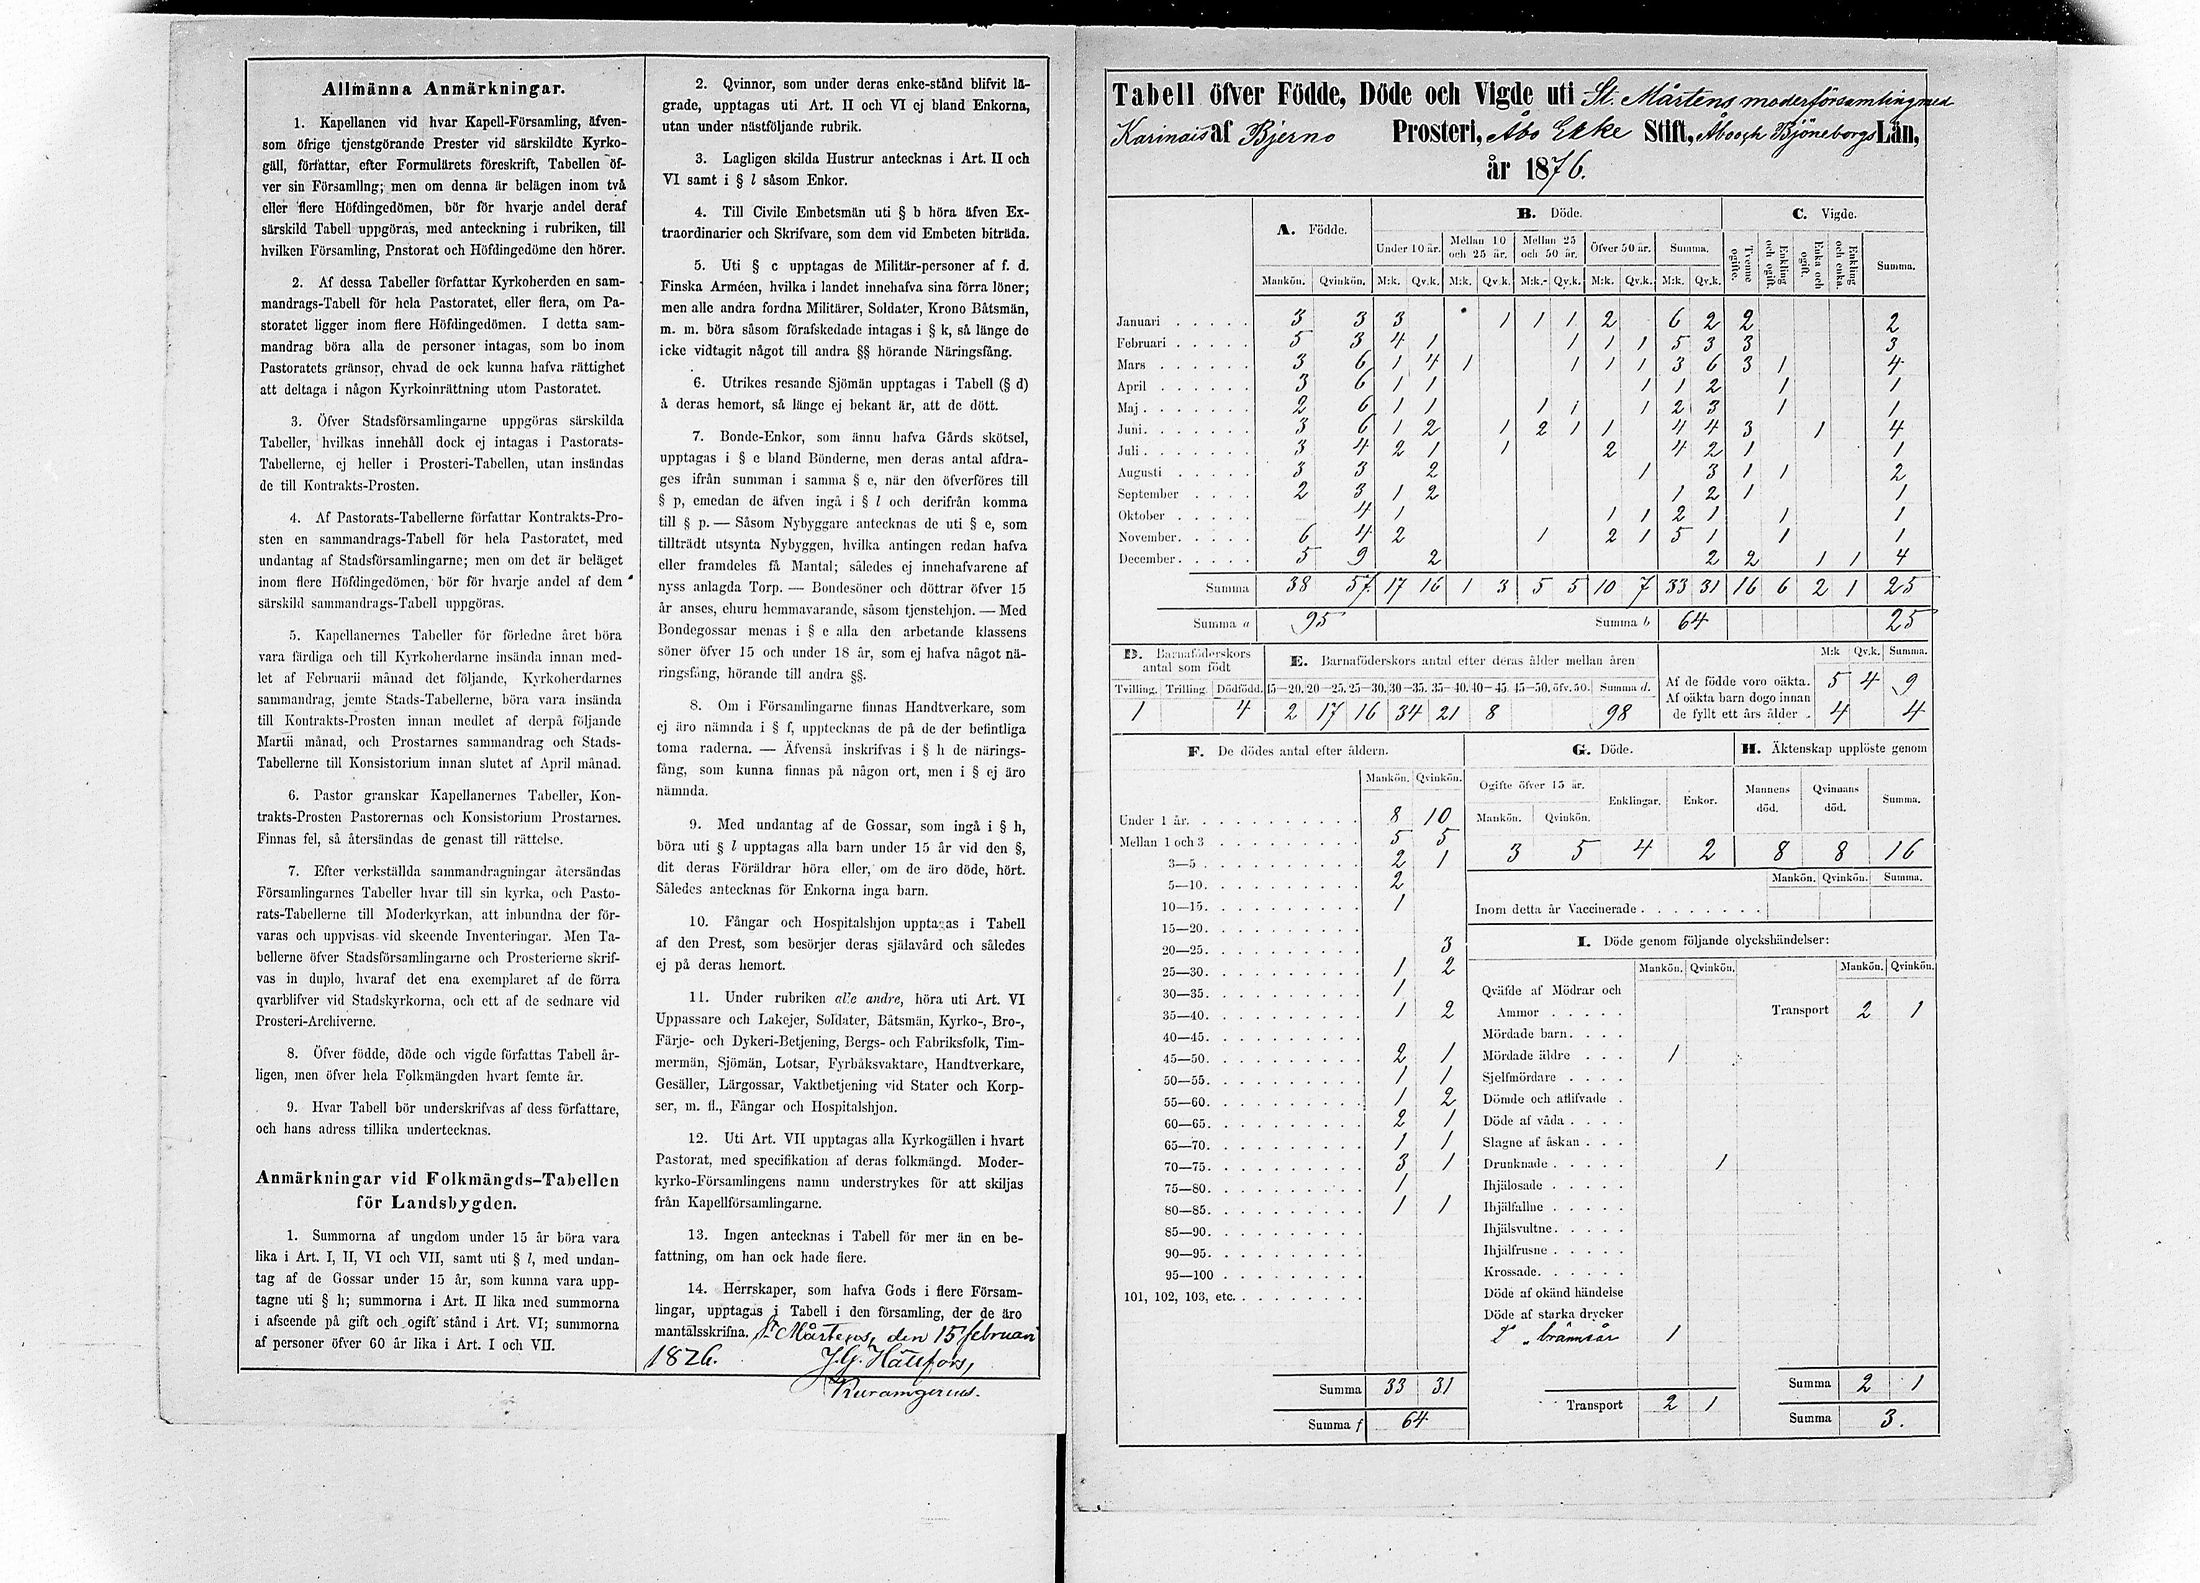 Allmänna Anmärkningar.
1. Kapellanen vid hvar Kapell-Församling, äfven-
som öfrige tjenstgörande Prester vid särskildte Kyrko-
gäll, författar, efter Formulärets föreskrift, Tabellen öf-
ver sin Församling; men om denna är belägen inom två
eller flere Höfdingedömen, bör för hvarje andel deraf
särskild Tabell uppgöras, med anteckning i rubriken, till
hvilken Församling, Pastorat och Höfdingedöme den hörer.
2. Af dessa Tabeller författar Kyrkoherden en sam-
mandrags-Tabell för hela Pastoratet, eller flera, om Pa-
storatet ligger inom flere Höfdingedömen. I detta sam-
mandrag böra alla de personer intagas, som bo inom
Pastoratets gränsor, ehvad de ock kunna hafva rättighet
att deltaga i någon Kyrkoinrättning utom Pastoratet.
3. Öfver Stadsförsamlingarne uppgöras särskilda
Tabeller, hvilkas innehåll dock ej intagas i Pastorats-
Tabellerne, ej heller i Prosteri-Tabellen, utan insändas
de till Kontrakts-Prosten.
4. Af Pastorats-Tabellerne författar Kontrakts-Pro-
sten en sammandrags-Tabell för hela Pastoratet, med
undantag af Stadsförsamlingarne; men om det är beläget
inom flere Höfdingedömen, bör för hvarje andel af dem
särskild sammandrags-Tabell uppgöras.
5. Kapellanernes Tabeller för förledne året böra
vara färdiga och till Kyrkoherdarne insända innan med-
let af Februarii månad det följande, Kyrkoherdarnes
sammandrag, jemte Stads-Tabellerne, böra vara insända
till Kontrakts-Prosten innan medlet af derpå följande
Martii månad, och Prostarnes sammandrag och Stads-
Tabellerne till Konsistorium innan slutet af April månad.
6. Pastor granskar Kapellanernes Tabeller, Kon-
trakts-Prosten Pastorernas och Konsistorium Prostarnes.
Finnas fel, så återsändas de genast till rättelse.
7. Efter verkställda sammandragningar återsändas
Församlingarnes Tabeller hvar till sin kyrka, och Pasto-
rats-Tabellerne till Moderkyrkan, att inbundna der för-
varas och uppvisas vid skeende Inventeringar. Men Ta-
bellerne öfver Stadsförsamlingarne och Prosterierne skrif-
vas in duplo, hvaraf det ena exemplaret af de förra
qvarblifver vid Stadskyrkorna, och ett af de sednare vid
Prosteri-Archiverne.
8. Öfver födde, döde och vigde författas Tabell år-
ligen, men öfver hela Folkmängden hvart femte år.
9. Hvar Tabell bör underskrifvas af dess författare,
och hans adress tillika undertecknas.
Anmärkningar vid Folkmängds-Tabellen
för Landsbygden.
1. Summorna af ungdom under 15 år böra vara
lika i Art. I, II, VI och VII, samt uti § l, med undan-
tag af de Gossar under 15 år, som kunna vara upp-
tagne uti § h; summorna i Art. II lika med summorna
i afseende på gift och ogift stånd i Art. VI; summorna
af personer öfver 60 år lika i Art. I och VII.
2. Qvinnor, som under deras enke-stånd blifvit lä-
grade, upptagas uti Art. II och VI ej bland Enkorna,
utan under nästföljande rubrik.
3. Lagligen skilda Hustrur antecknas i Art. II och
VI samt i § l såsom Enkor.
4. Till Civile Embetsmän uti § b höra äfven Ex-
traordinarier och Skrifvare, som dem vid Embeten biträda.
5. Uti § c upptagas de Militär-personer af f. d.
Finska Arméen, hvilka i landet innehafva sina förra löner;
men alle andra fordna Militärer, Soldater, Krono Båtsmän,
m. m. böra såsom förafskedade intagas i § k, så länge de
icke vidtagit något till andra §§ hörande Näringsfång.
6. Utrikes resande Sjömän upptagas i Tabell (§ d)
å deras hemort, så länge ej bekant är, att de dött.
7. Bonde-Enkor, som ännu hafva Gårds skötsel,
upptagas i § e bland Bönderne, men deras antal afdra-
ges ifrån summan i samma § e, när den öfverföres till
§ p, emedan de äfven ingå i § l och derifrån komma
till § p. — Såsom Nybyggare antecknas de uti § e, som
tillträdt utsynta Nybyggen, hvilka antingen redan hafva
eller framdeles få Mantal; således ej innehafvarene af
nyss anlagda Torp. — Bondesöner och döttrar öfver 15
år anses, ehuru hemmavarande, såsom tjenstehjon. — Med
Bondegossar menas i § e alla den arbetande klassens
söner öfver 15 och under 18 år, som ej hafva något nä-
ringsfång, hörande till andra §§.
8. Om i Församlingarne finnas Handtverkare, som
ej äro nämnda i § f, upptecknas de på de der befintliga
toma raderna. — Äfvenså inskrifvas i § h de närings-
fång, som kunna finnas på någon ort, men i § ej äro
nämnda.
9. Med undantag af de Gossar, som ingå i § h,
böra uti § l upptagas alla barn under 15 år vid den §,
dit deras Föräldrar höra eller, om de äro döde, hört.
Således antecknas för Enkorna inga barn.
10. Fångar och Hospitalshjon upptagas i Tabell
af den Prest, som besörjer deras själavård och således
ej på deras hemort.
11. Under rubriken alle andre, höra uti Art. VI
Uppassare och Lakejer, Soldater, Båtsmän, Kyrko-, Bro-,
Färje- och Dykeri-Betjening, Bergs- och Fabriksfolk, Tim-
mermän, Sjömän, Lotsar, Fyrbåksvaktare, Handtverkare,
Gesäller, Lärgossar, Vaktbetjening vid Stater och Korp-
ser, m. fl., Fångar och Hospitalshjon.
12. Uti Art. VII upptagas alla Kyrkogällen i hvart
Pastorat, med specifikation af deras folkmängd. Moder-
kyrko-Församlingens namn understrykes för att skiljas
från Kapellförsamlingarne.
13. Ingen antecknas i Tabell för mer än en be-
fattning, om han ock hade flere.
14. Herrskaper, som hafva Gods i flere Försam-
lingar, upptagas i Tabell i den församling, der de äro
mantalsskrifna. St Mårtens, den 15 februari
1876. J. G. Hällfors,
Tabell öfver Födde, Döde och Vigde uti St. Mårtens moderförsamling med
Karinais af Bjerno Prosteri, Åbo Erke Stift, Åbo och Björneborgs Län,
år 1876.
A. Födde. B. Döde. C. Vigde.
Under 10 år. Mellan 10 och 25 år. Mellan 25 och 50 år. Öfver 50 år. Summa. Tvenne ogifte. Enkling och ogift. Enka och ogift. Enkling och enka. Summa.
Mankön. Qvinkön. M:k. Qv.k. M:k. Qv.k. M:k. Qv.k. M:k. Qv.k. M:k. Qv.k.
Januari 3 3 3 1 1 1 2 6 2 2 2
Februari 5 3 4 1 1 1 1 5 3 3 3
Mars 3 6 1 4 1 1 1 1 3 6 3 1 4
April 3 6 1 1 1 1 2 1 1
Maj 2 6 1 1 1 1 1 2 3 1 1
Juni 3 6 1 2 1 2 1 1 4 4 3 1 4
Juli 3 4 2 1 1 2 4 2 1 1
Augusti 3 3 2 1 3 1 1 2
September 2 3 1 2 1 2 1 1
Oktober 4 1 1 1 2 1 1 1
November 6 4 2 1 2 1 5 1 1 1
December 5 9 2 2 2 1 1 4
Summa 38 57 17 16 1 3 5 5 10 7 33 31 16 6 2 1 25
Summa a 95 Summa b 64 25
D. Barnaföderskors antal som födt
Tvilling. Trilling. Dödfödd.
1 4
E. Barnaföderskors antal efter deras ålder mellan åren
15—20. 20—25. 25—30. 30—35. 35—40. 40—45. 45—50. öfv. 50. Summa d.
2 17 16 34 21 8 98
M:k Qv.k. Summa.
Af de födde voro oäkta. 5 4 9
Af oäkta barn dogo innan
de fyllt ett års ålder 4 4
F. De dödes antal efter åldern.
Mankön. Qvinkön.
Under 1 år. 8 10
Mellan 1 och 3 5 5
3—5 2 1
5—10. 2
10—15. 1
15—20.
20—25. 3
25—30. 1 2
30—35. 1
35—40. 1 2
40—45.
45—50. 2 1
50—55. 1 1
55—60. 1 2
60—65. 2 1
65—70. 1 1
70—75. 3 1
75—80. 1
80—85. 1 1
85—90.
90—95.
95—100
101, 102, 103, etc.
Summa 33 31
Summa f 64
G. Döde.
Ogifte öfver 15 år. Enklingar. Enkor.
Mankön. Qvinkön.
3 5 4 2
H. Äktenskap upplöste genom
Mannens död. Qvinnans död. Summa.
8 8 16
Mankön. Qvinkön. Summa.
Inom detta år Vaccinerade
I. Döde genom följande olyckshändelser:
Mankön. Qvinkön. Mankön. Qvinkön.
Qväfde af Mödrar och
Ammor Transport 2 1
Mördade barn
Mördade äldre 1
Sjelfmördare
Dömde och aflifvade
Döde af våda
Slagne af åskan
Drunknade 1
Ihjälosade
Ihjälfallne
Ihjälsvultne
Ihjälfrusne
Krossade
Döde af okänd händelse
Döde af starka drycker
D° „ brännsår 1
Summa 2 1
Transport 2 1
Summa 3.